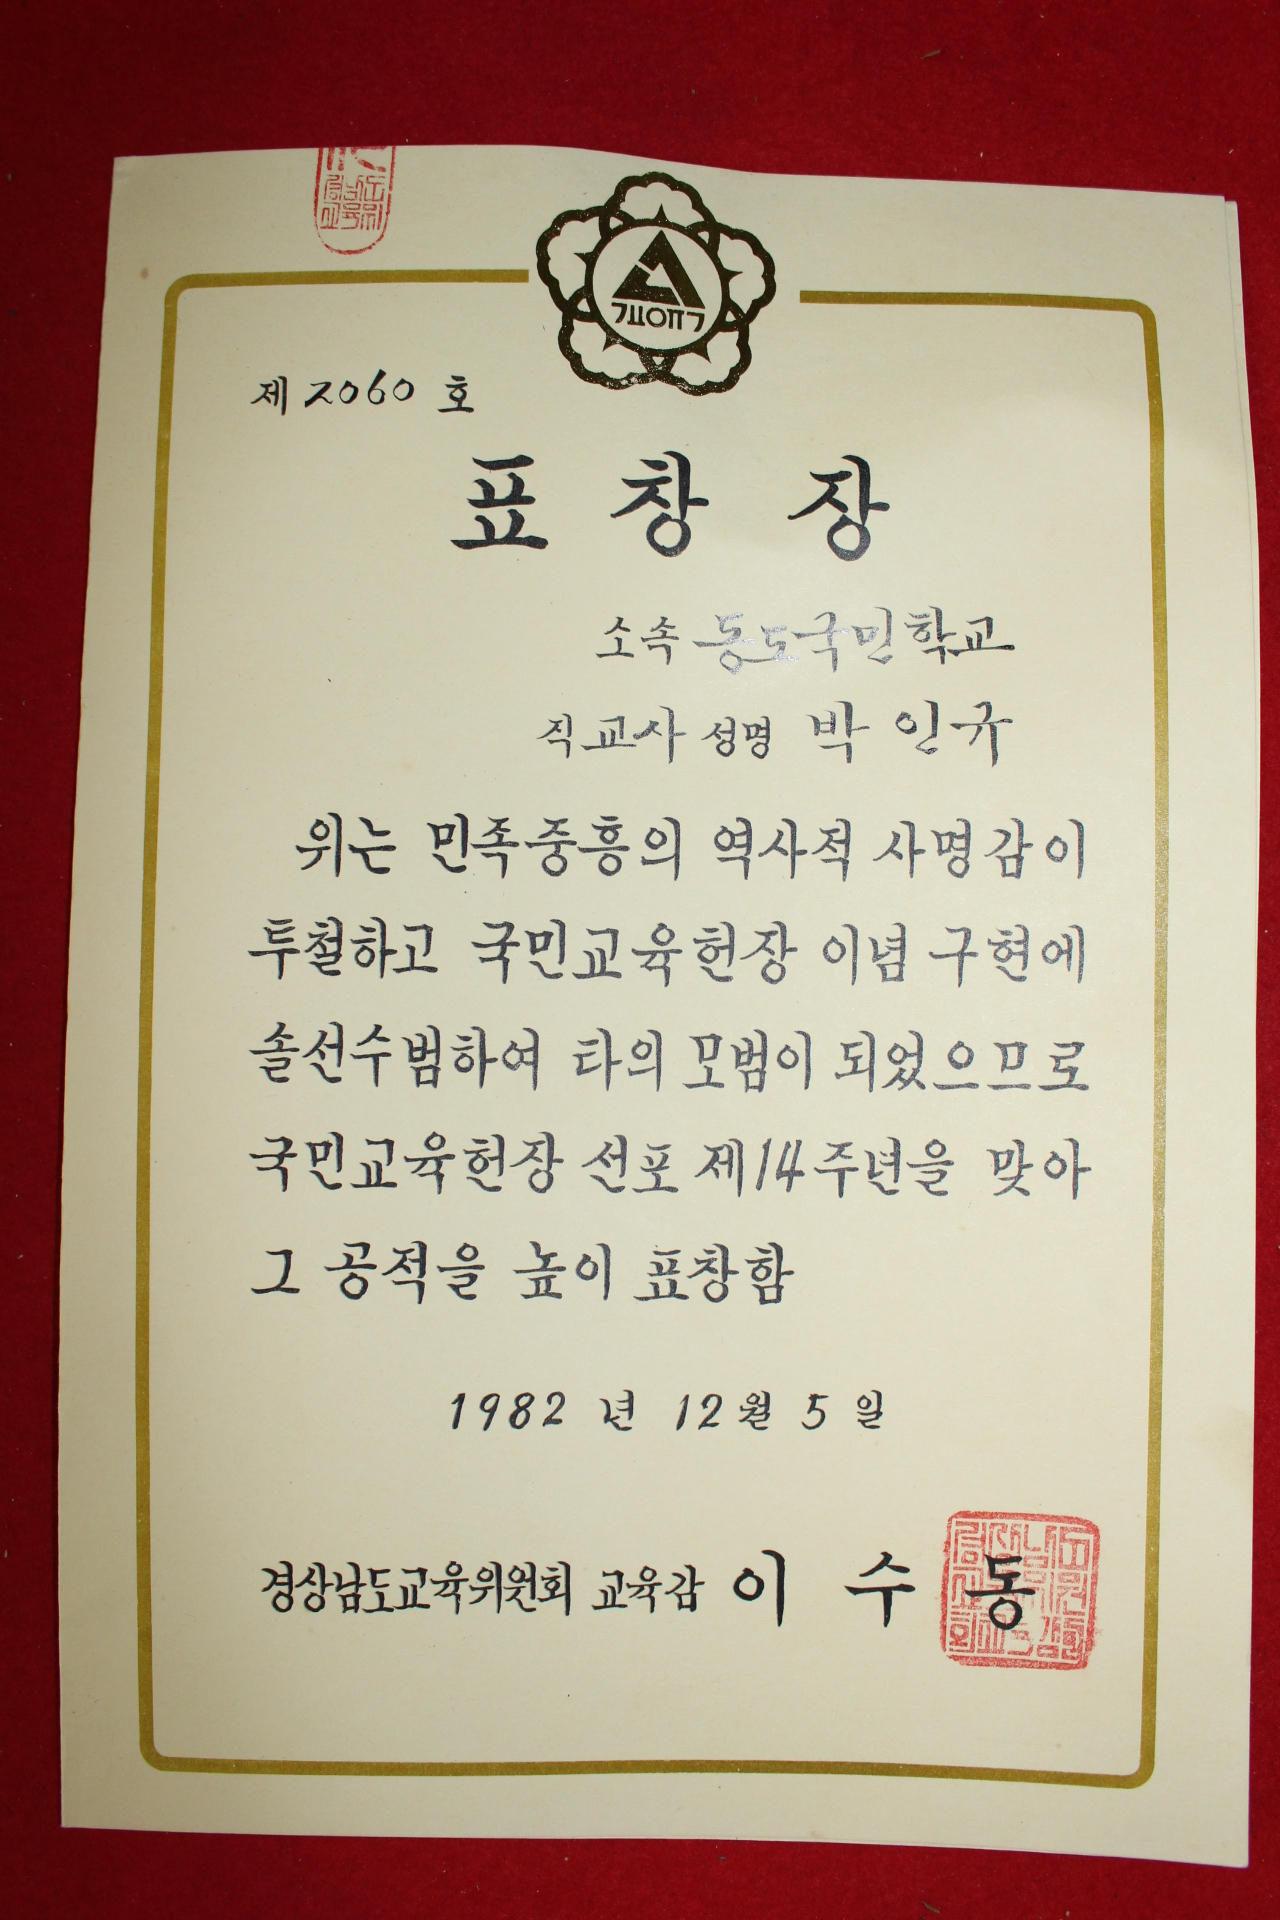 ㄱㅛㅇㅠㄱ
제 2060 호
표 창 장
소속 동도국민학교
직 교사 성명 박 인규
위는 민족중흥의 역사적 사명감이
투철하고 국민교육헌장 이념 구현에
솔선수범하여 타의 모범이 되었으므로
국민교육헌장 선포 제14주년을 맞아
그 공적을 높이 표창함
1982 년 12 월 5 일
경상남도교육위원회 교육감 이 수 동